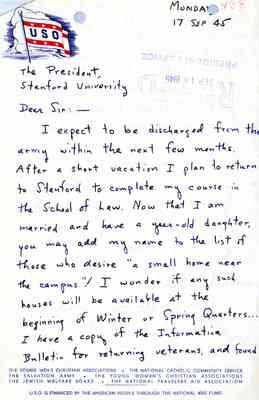 MONDAY
17 SEP 45
USO
The President,
Stanford University
Dear Sir: —
I expect to be discharged from the
army within the next few months.
After a short vacation I plan to return
to Stanford to complete my course in
the School of Law. Now that I am
married and have a year-old daughter,
you may add my name to the list of
those who desire "a small home near
the campus"! I wonder if any such
houses will be available at the
beginning of Winter or Spring Quarters...
I have a copy of the Information
Bulletin for returning veterans, and found
THE YOUNG MEN'S CHRISTIAN ASSOCIATIONS • THE NATIONAL CATHOLIC COMMUNITY SERVICE
THE SALVATION ARMY • THE YOUNG WOMEN'S CHRISTIAN ASSOCIATIONS
THE JEWISH WELFARE BOARD • THE NATIONAL TRAVELERS AID ASSOCIATION
U.S.O. IS FINANCED BY THE AMERICAN PEOPLE THROUGH THE NATIONAL WAR FUND